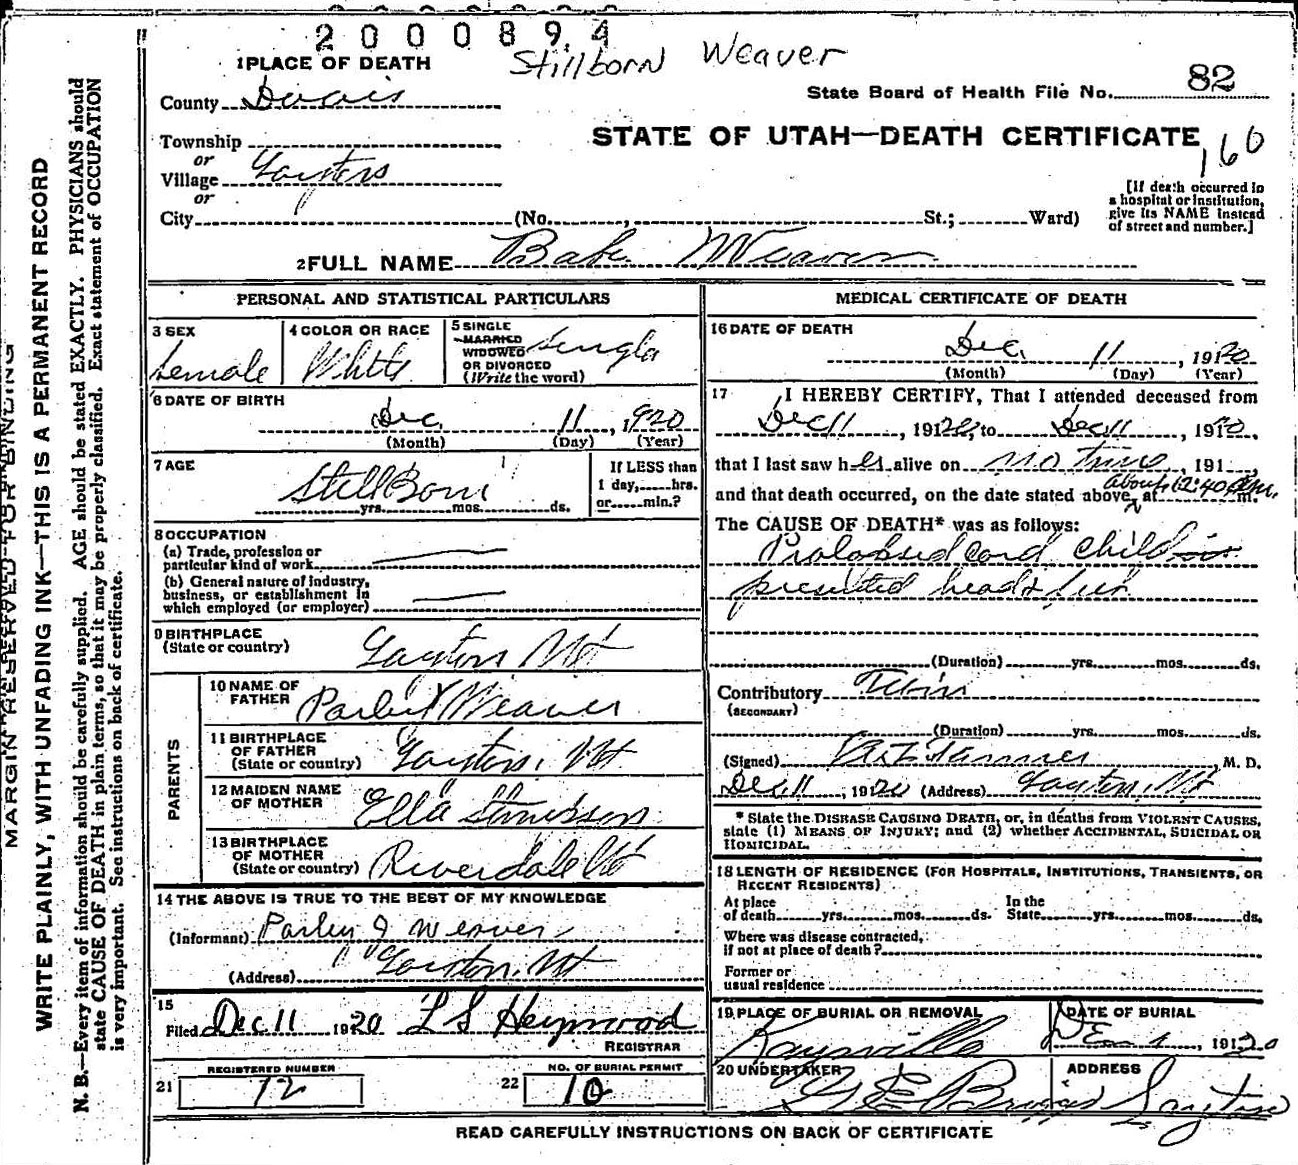 2000894
Stillborn Weaver
1 PLACE OF DEATH
82
State Board of Health File No.
County Davis
STATE OF UTAH—DEATH CERTIFICATE
160
Township
or
Village Layton
or
City (No. , St.; Ward)
[If death occurred in
a hospital or institution,
give its NAME instead
of street and number.]
2 FULL NAME Babe Weaver
PERSONAL AND STATISTICAL PARTICULARS
3 SEX
Female
4 COLOR OR RACE
White
5 SINGLE
MARRIED
WIDOWED
OR DIVORCED
(Write the word)
Single
6 DATE OF BIRTH
Dec 11, 1920
(Month) (Day) (Year)
7 AGE
StillBorn
yrs. mos. ds.
If LESS than
1 day, hrs.
or min.?
8 OCCUPATION
(a) Trade, profession or
particular kind of work
(b) General nature of industry,
business, or establishment in
which employed (or employer)
9 BIRTHPLACE
(State or country)
Layton Ut
PARENTS
10 NAME OF
FATHER
Weaver
11 BIRTHPLACE
OF FATHER
(State or country)
Layton, Ut
12 MAIDEN NAME
OF MOTHER
Ella
13 BIRTHPLACE
OF MOTHER
(State or country)
Riverdale Ut
14 THE ABOVE IS TRUE TO THE BEST OF MY KNOWLEDGE
(Informant) Parley J Weaver
(Address) Layton, Ut
15
Filed Dec 11 1920 L S Heywood
REGISTRAR
REGISTERED NUMBER
21 72
NO. OF BURIAL PERMIT
22 10
MEDICAL CERTIFICATE OF DEATH
16 DATE OF DEATH
Dec. 11, 1920
(Month) (Day) (Year)
17 I HEREBY CERTIFY, That I attended deceased from
Dec 11, 1920, to Dec 11, 1920,
that I last saw her alive on no time, 191 ,
and that death occurred, on the date stated above, at about 12:40 m.
The CAUSE OF DEATH* was as follows:
Prolapsed cord child
presented head &
(Duration) yrs. mos. ds.
Contributory Twin
(SECONDARY)
(Duration) yrs. mos. ds.
(Signed) Tanner, M. D.
Dec 11, 1920 (Address) Layton, Ut
* State the DISEASE CAUSING DEATH, or, in deaths from VIOLENT CAUSES,
state (1) MEANS OF INJURY; and (2) whether ACCIDENTAL, SUICIDAL OR
HOMICIDAL.
18 LENGTH OF RESIDENCE (FOR HOSPITALS, INSTITUTIONS, TRANSIENTS, OR
RECENT RESIDENTS)
At place
of death yrs. mos. ds.
In the
State yrs. mos. ds.
Where was disease contracted,
if not at place of death?
Former or
usual residence
19 PLACE OF BURIAL OR REMOVAL
Kaysville
DATE OF BURIAL
1920
20 UNDERTAKER
ADDRESS
Layton
READ CAREFULLY INSTRUCTIONS ON BACK OF CERTIFICATE
MARGIN RESERVED FOR BINDING
WRITE PLAINLY, WITH UNFADING INK—THIS IS A PERMANENT RECORD
N. B.—Every item of information should be carefully supplied. AGE should be stated EXACTLY. PHYSICIANS should
state CAUSE OF DEATH in plain terms, so that it may be properly classified. Exact statement of OCCUPATION
is very important. See instructions on back of certificate.